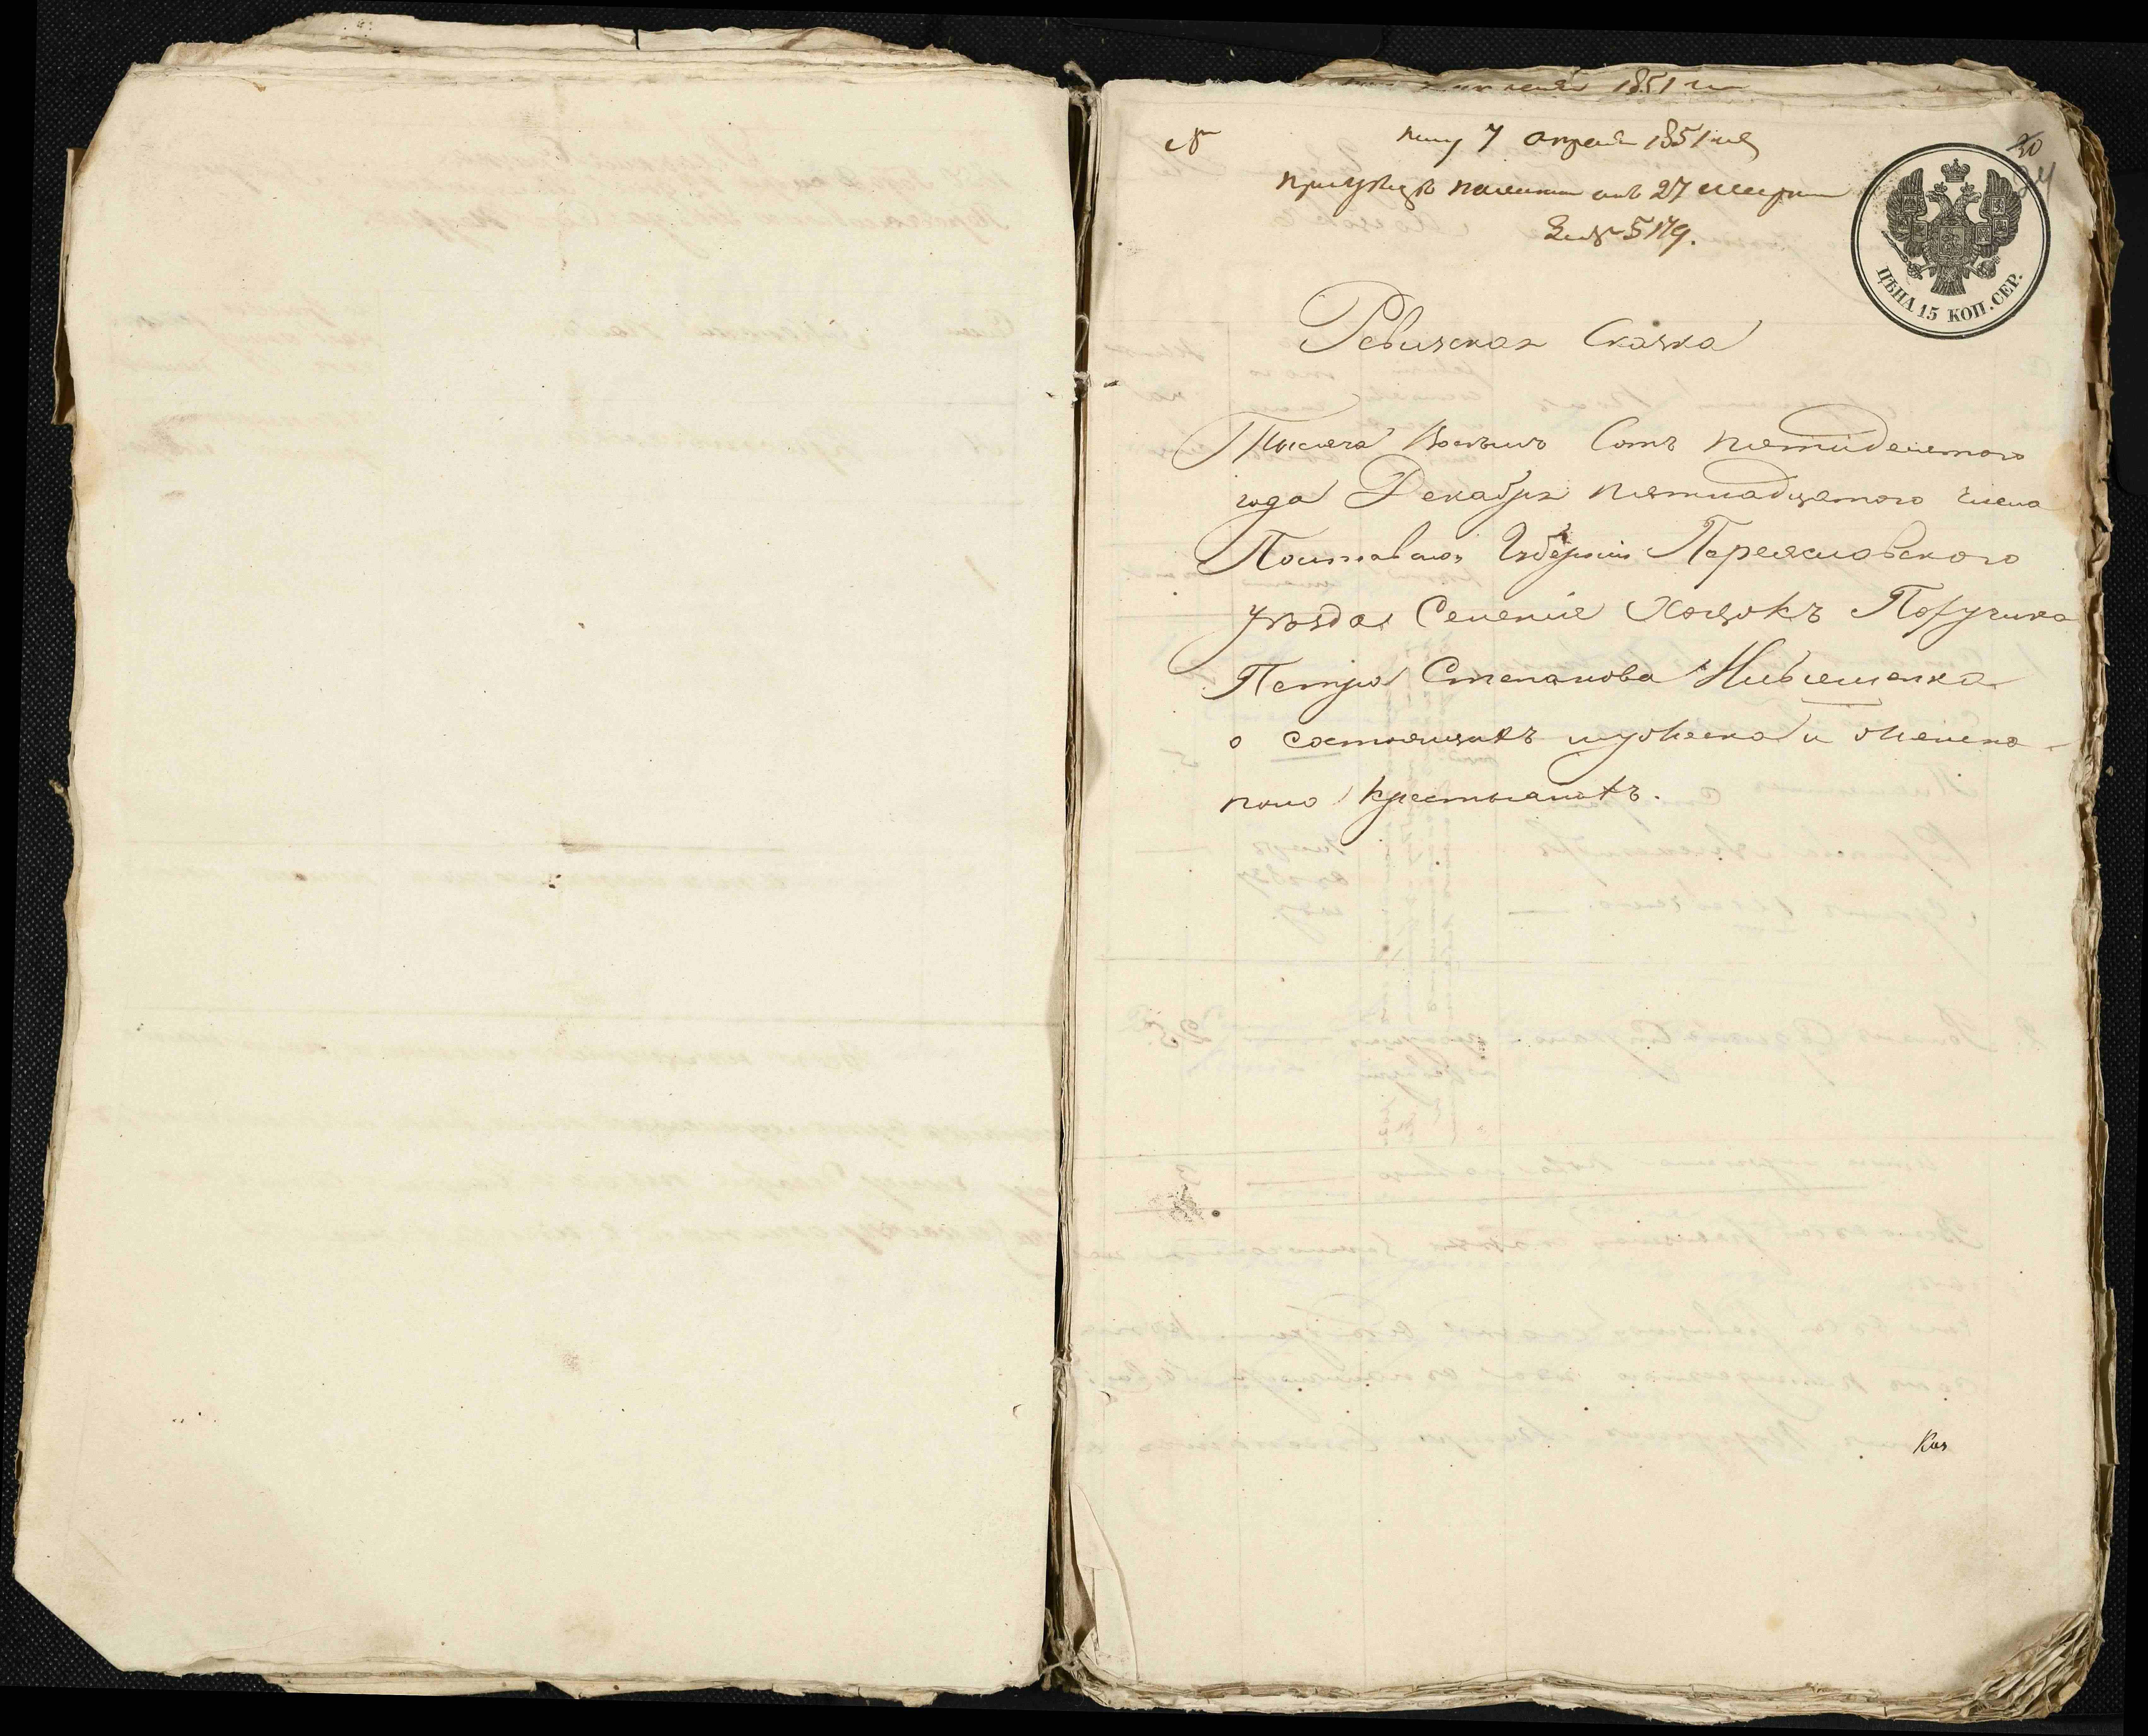 7 апреля 1851 года
при указе палаты от 27 марта
За № 5179.
30
24
ЦѢНА 15 КОП. СЕР.
Ревизская Сказка
Тысяча Восемь Сотъ пятидесятого
года Декабря пятнадцятого числа
Полтавской Губерніи Переяславского
уѣзда Селенія Хоцокъ Поручика
Петра Степанова
о состоящихъ мужеска и женска
пола крестьянахъ.